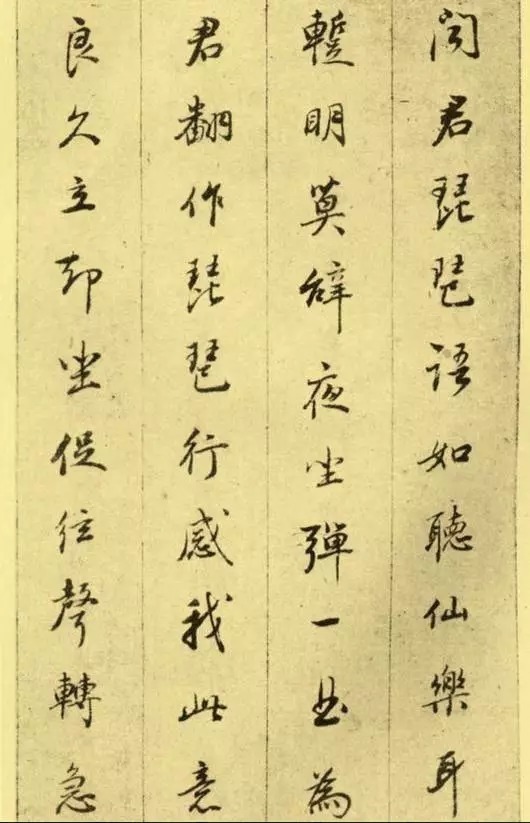 聞君琵琶語如聽仙樂耳
蹔明莫辭夜坐彈一曲為
君翻作琵琶行感我此意
良久立却坐促弦聲轉急